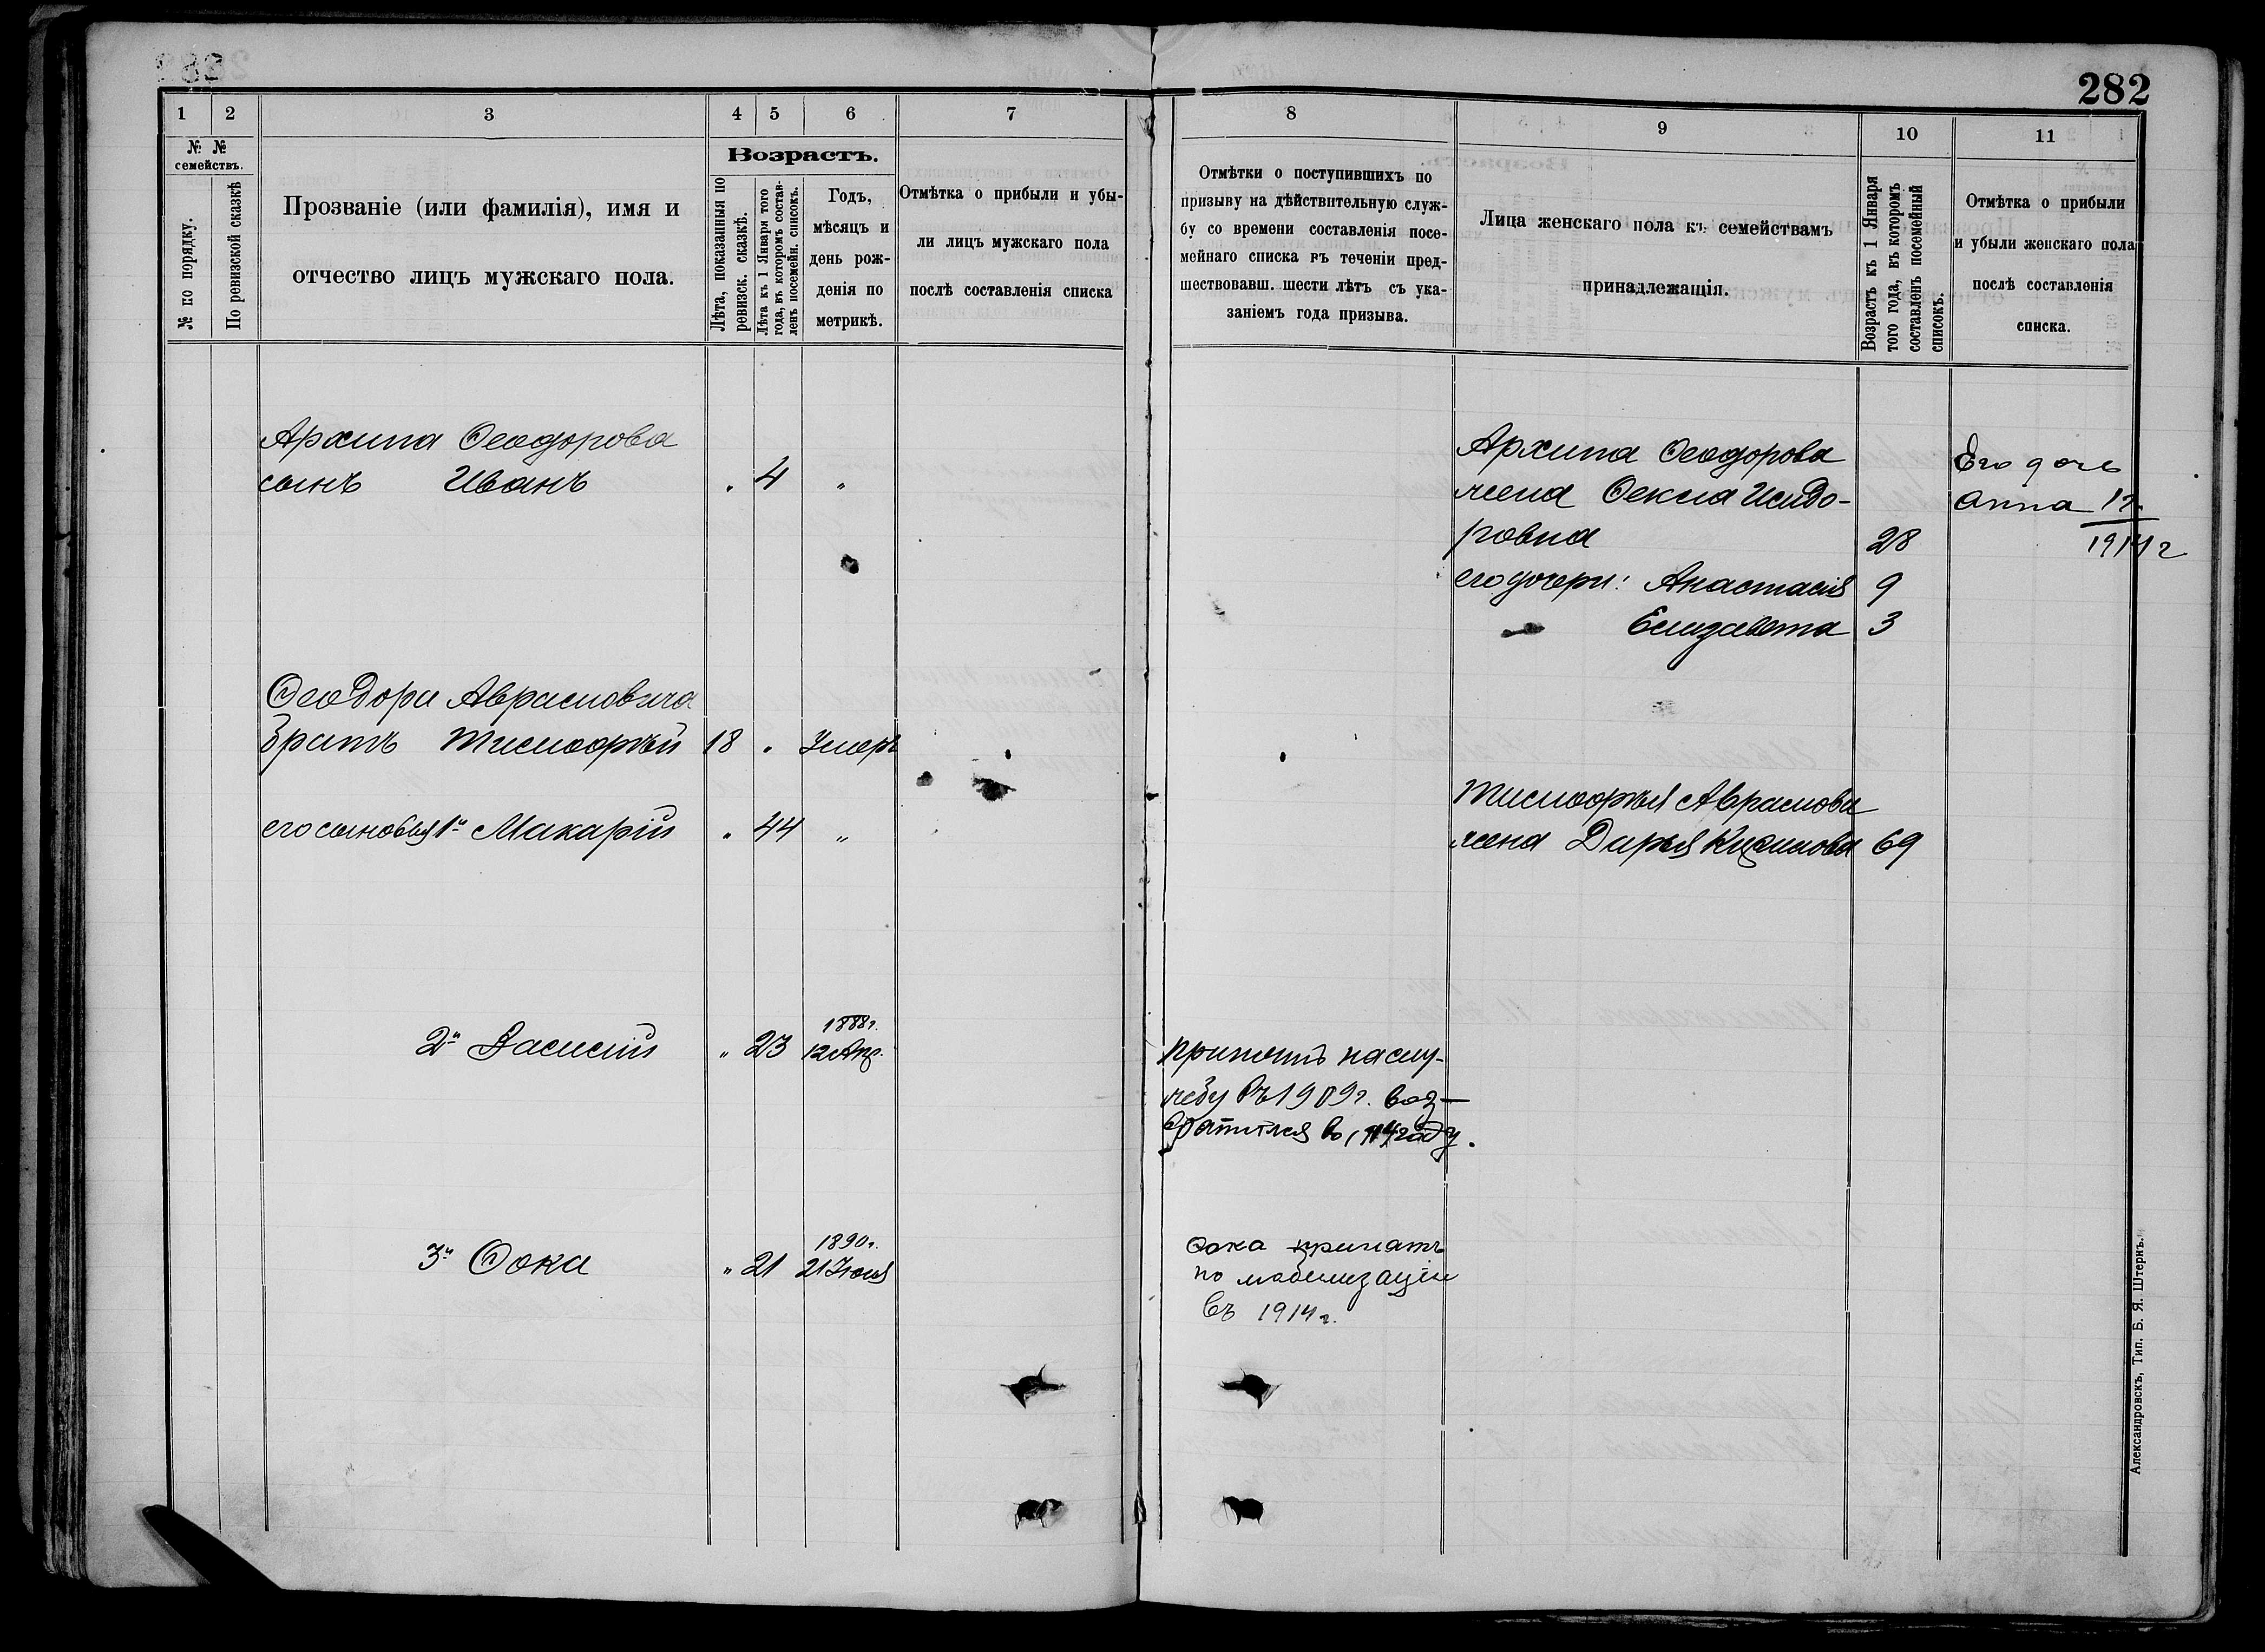 282
1
2
3
4
5
6
7
№ № семействъ.
№ по порядку.
По ревизской сказкѣ
Прозваніе (или фамилія), имя и
отчество лицъ мужскаго пола.
Возрастъ.
Лѣта, показанныя по
ревизск. сказкѣ.
Лѣта къ 1 Января того
года, въ которомъ состав-
ленъ посемейн. списокъ.
Годъ,
мѣсяцъ и
день рож-
денія по
метрикѣ.
Отмѣтка о прибыли и убы-
ли лицъ мужскаго пола
послѣ составленія списка
Архипа Ѳеодорова
сынъ Иванъ " 4 "
Ѳеодора Аврамовича
братъ Тимоѳѣй 18 " Умеръ
его сыновья 1й Макарій " 44 "
1888г.
2й Василій " 23 12 Апр.
1890г.
3й Ѳока " 21 21 Іюля
8
9
10
11
Отмѣтки о поступившихъ по
призыву на дѣйствительную служ-
бу со времени составленія посе-
мейнаго списка въ теченіи пред-
шествовавш. шести лѣтъ съ ука-
заніемъ года призыва.
Лица женскаго пола къ семействамъ
принадлежащія.
Возрастъ къ 1 Января
того года, въ которомъ
составленъ посемейный
списокъ.
Отмѣтка о прибыли
и убыли женскаго пола
послѣ составленія
списка.
Архипа Ѳеодорова
жена Ѳекла Исидо-
ровна 28
его дочери: Анастасія 9
Елизавета 3
Его дочь
Анна 1г.
1914г
Тимоѳѣя Аврамова
жена Дарья Климова 69
принятъ на слу-
жбу въ 1909г. воз-
вратился въ 1914 году.
Ѳока принятъ
по мобилизаціи
въ 1914г.
Александровскъ, Тип. Б. Я. Штернъ.